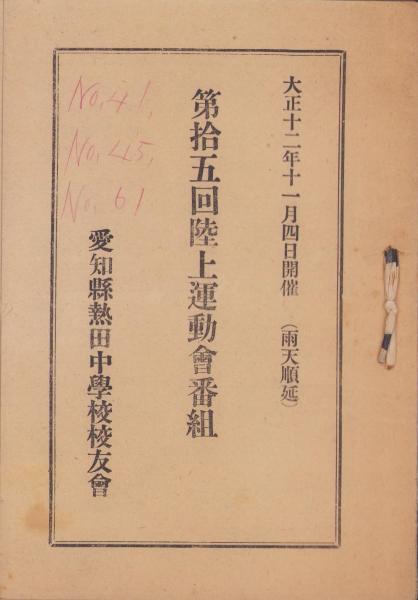 大正十二年十一月四日開催 （雨天順延）
第拾五回陸上運動會番組
愛知縣熱田中學校校友會
No, 41,
No, 45,
No, 61